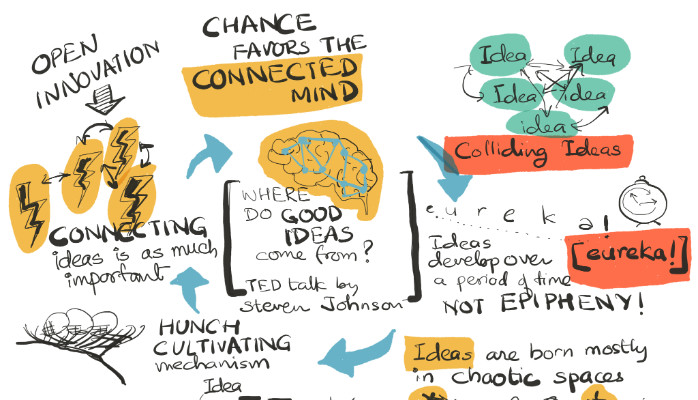 OPEN
INNOVATION
CHANCE
FAVORS THE
CONNECTED
MIND
Idea
Idea
Idea
idea
idea
Colliding Ideas
CONNECTING
ideas is as much
important
WHERE
DO GOOD
IDEAS
come from?
TED talk by
Steven Johnson
e u r e k a !
Ideas
develop over
a period of time
[eureka!]
NOT EPIPHENY!
HUNCH
CULTIVATING
mechanism
Idea
Ideas are born mostly
in chaotic spaces